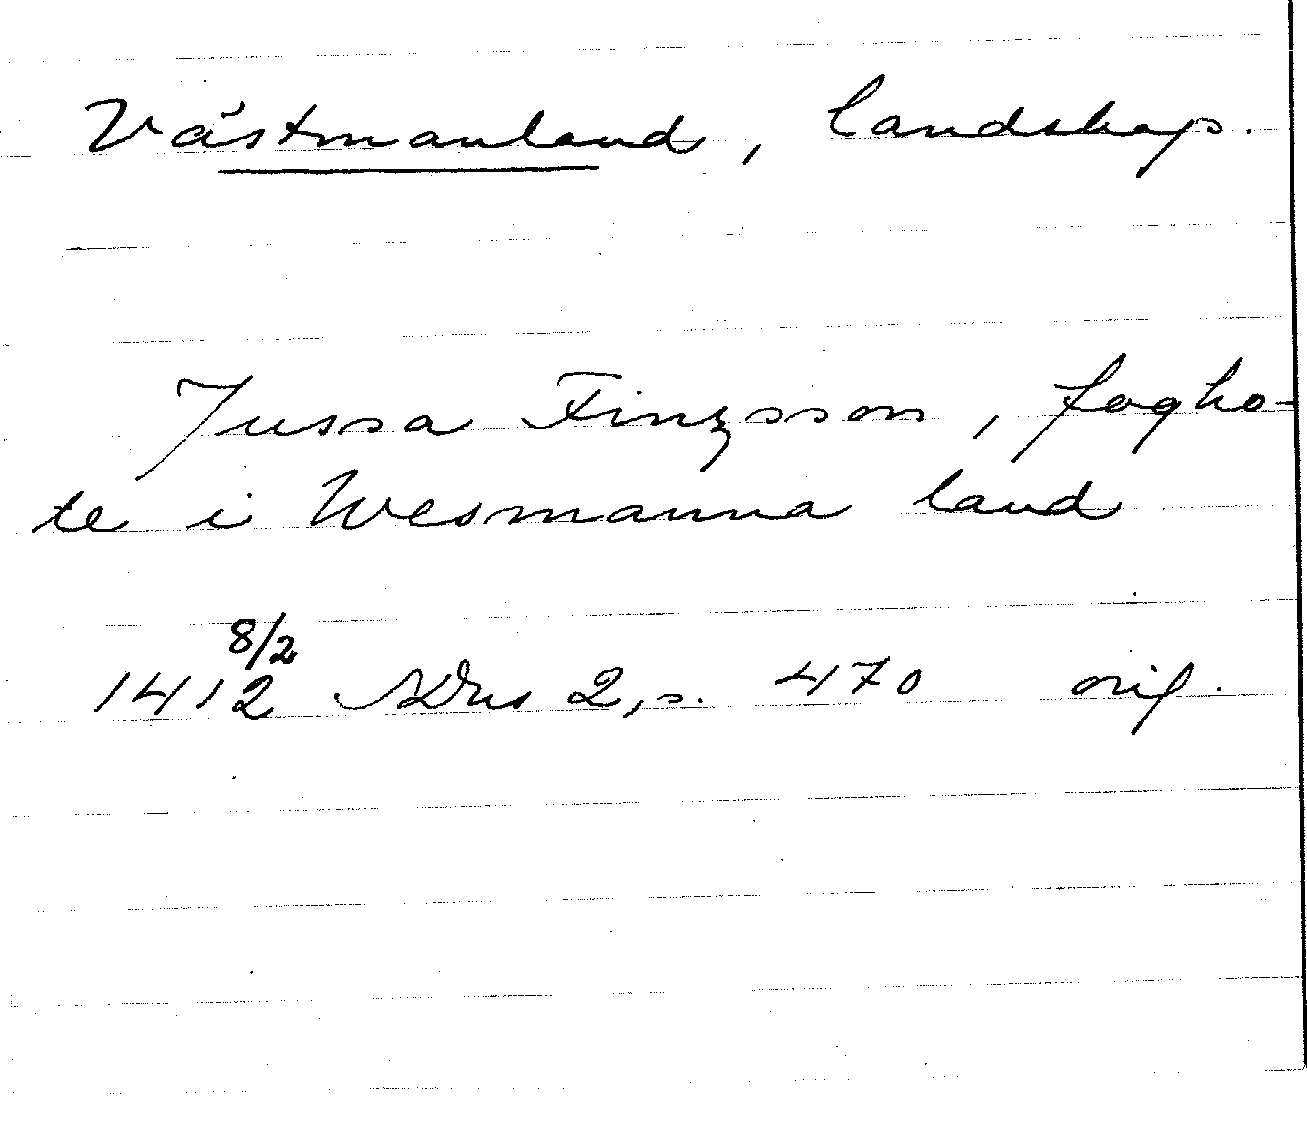 Västmanland, landskap.
Jussa Finzsson, fogho-
te i Wesmanna land
8/2
1412 SDns 2, s. 470 orig.